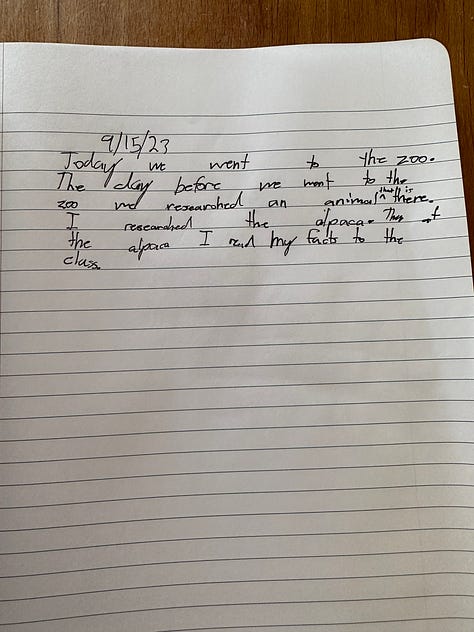 9/15/23
Today we went to the zoo.
The day before we went to the
zoo we researched an animal that is there.
I researched the alpaca. Then at
the alpaca I read my facts to the
class.